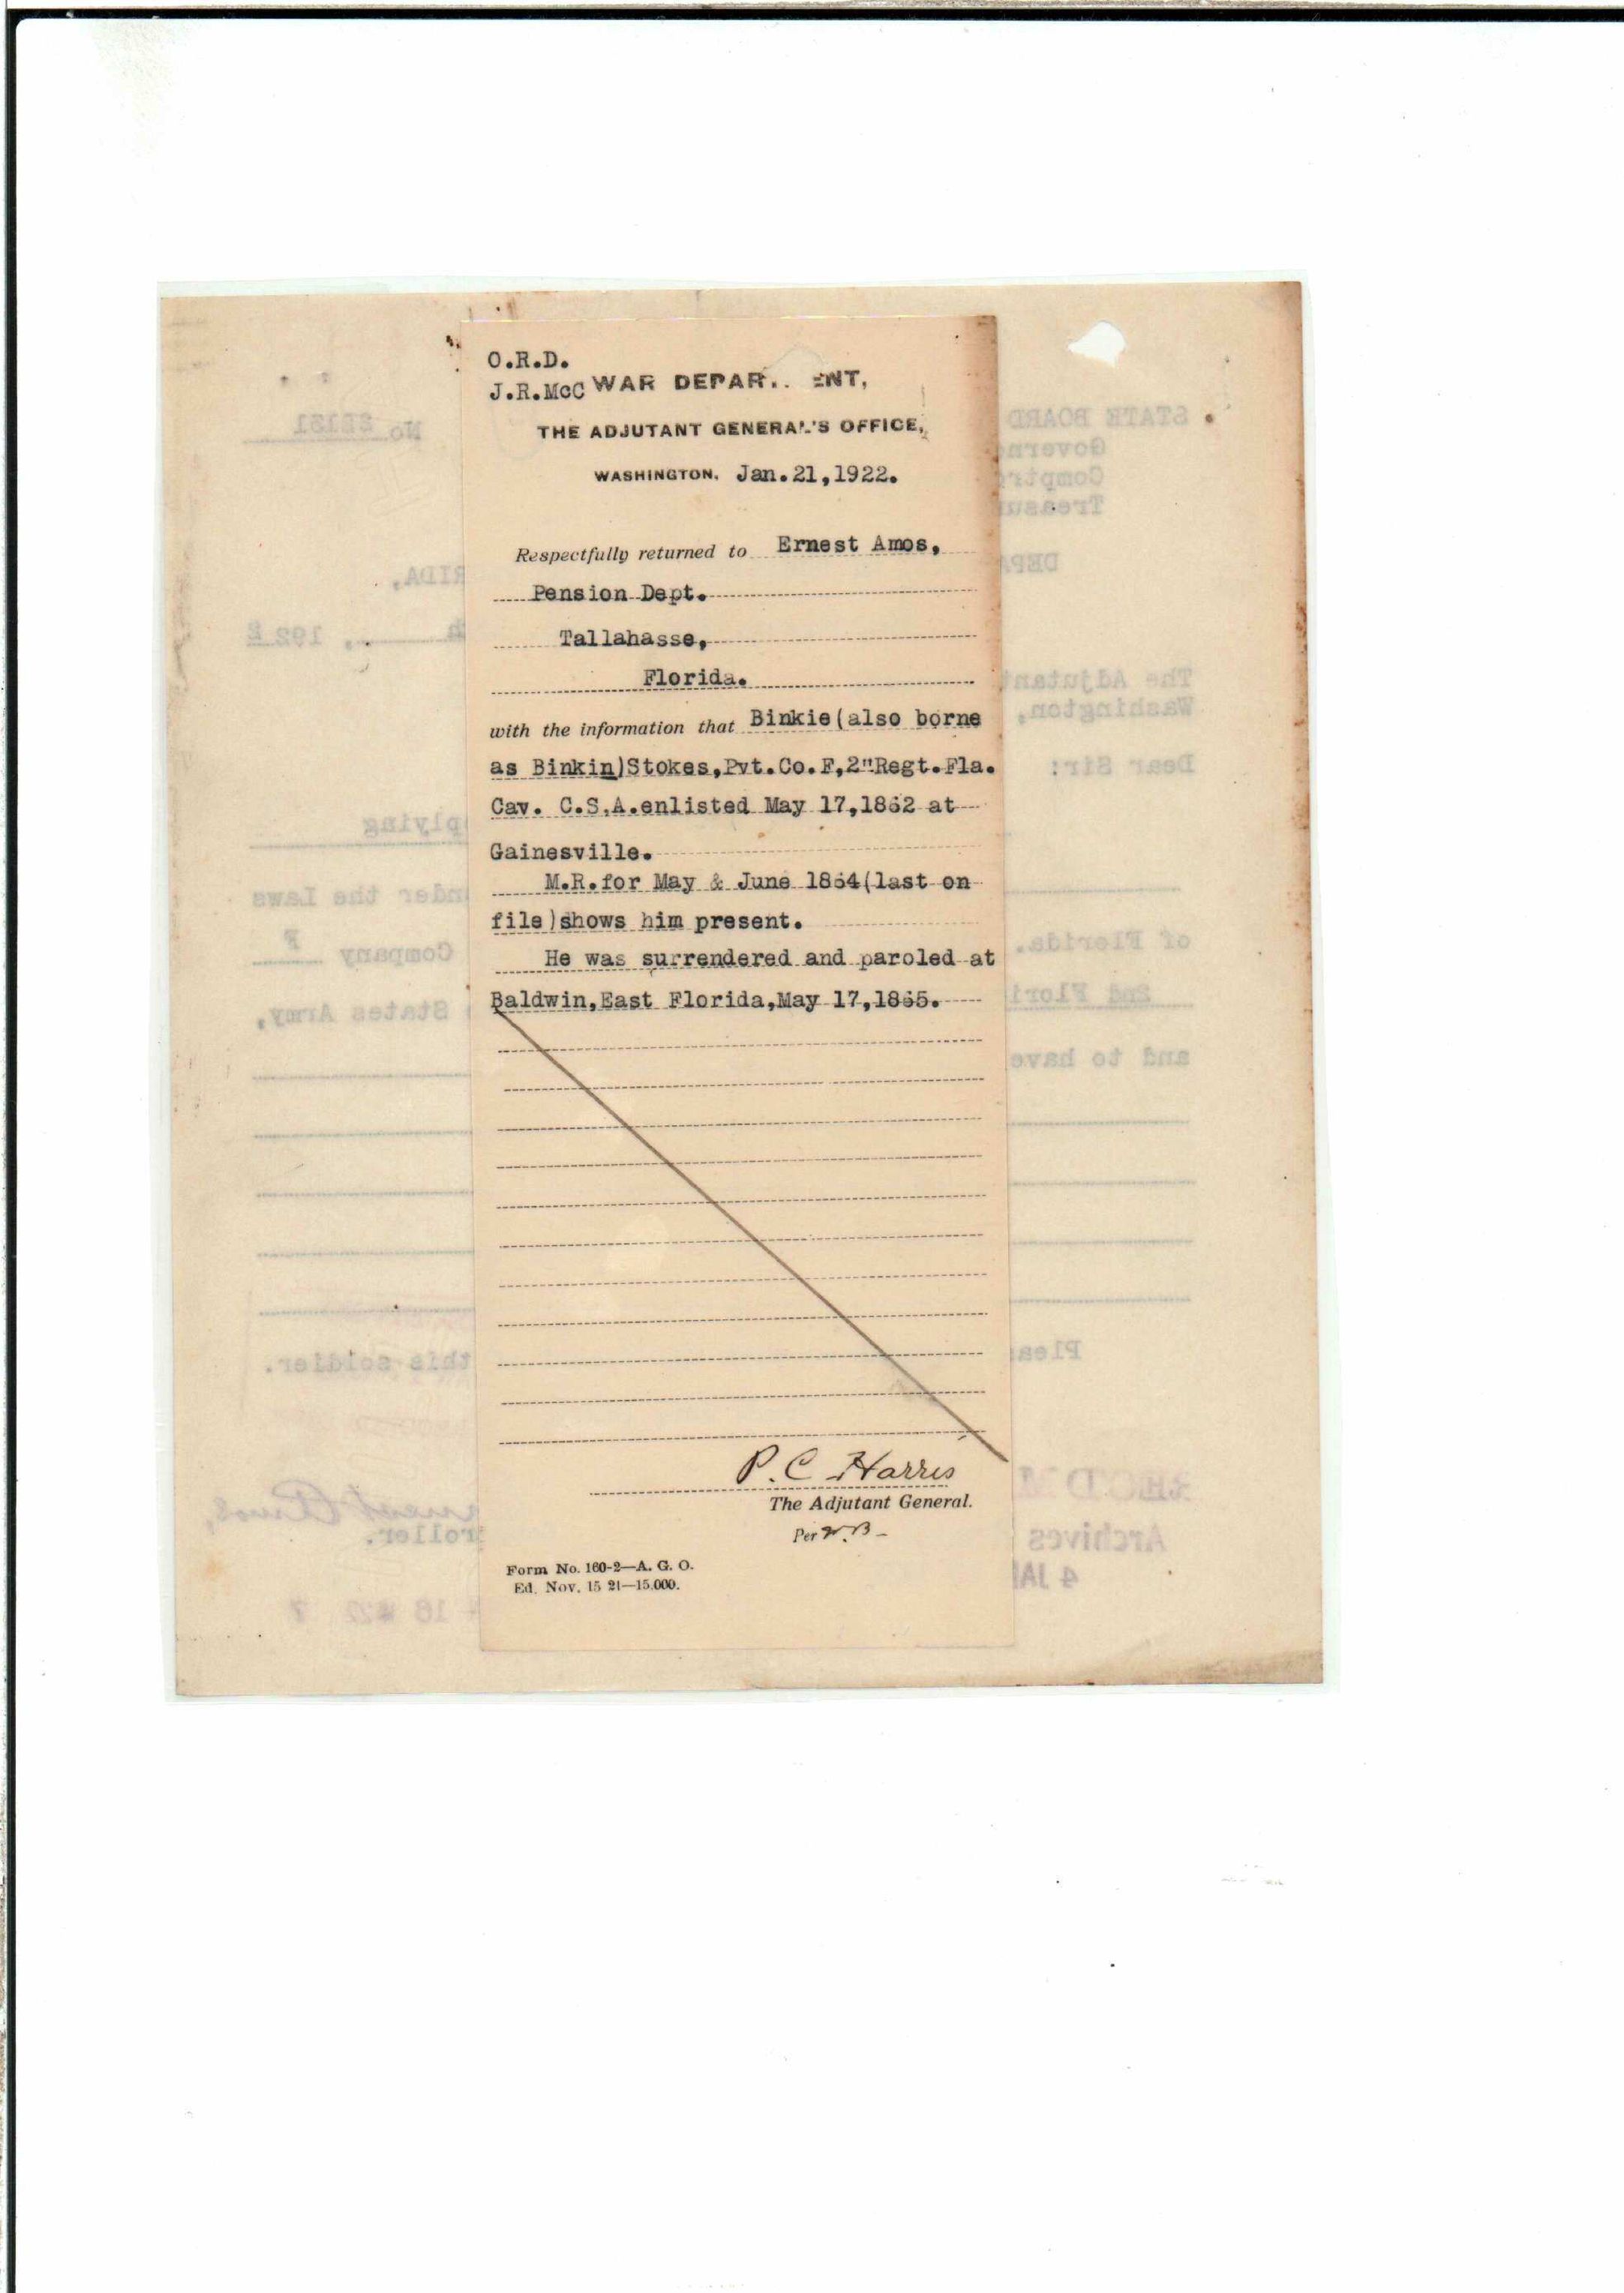 O.R.D.
J.R.McC WAR DEPAR.. ENT,
THE ADJUTANT GENERAL'S OFFICE,
WASHINGTON, Jan.21,1922.
Respectfully returned to Ernest Amos,
Pension Dept.
Tallahasse,
Florida.
with the information that Binkie(also borne
as Binkin)Stokes,Pvt.Co.F,2"Regt.Fla.
Cav. C.S.A.enlisted May 17,1862 at
Gainesville.
M.R.for May & June 1864(last on
file)shows him present.
He was surrendered and paroled at
Baldwin,East Florida,May 17,1865.
P. C Harris
The Adjutant General.
Per
Form No. 160-2—A. G. O.
Ed. Nov. 15 21—15,000.
STATE BOARD
No
Govern
Comptr
Treasu
DEPA
RIDA,
, 1922
The Adjutant
Washington,
Dear Sir:
plying
nder the Laws
of Florida.
Company F
2nd Flori
States Army,
and to have
Pleas
this soldier.
rnest Amos,
roller.
Archives
4 JA